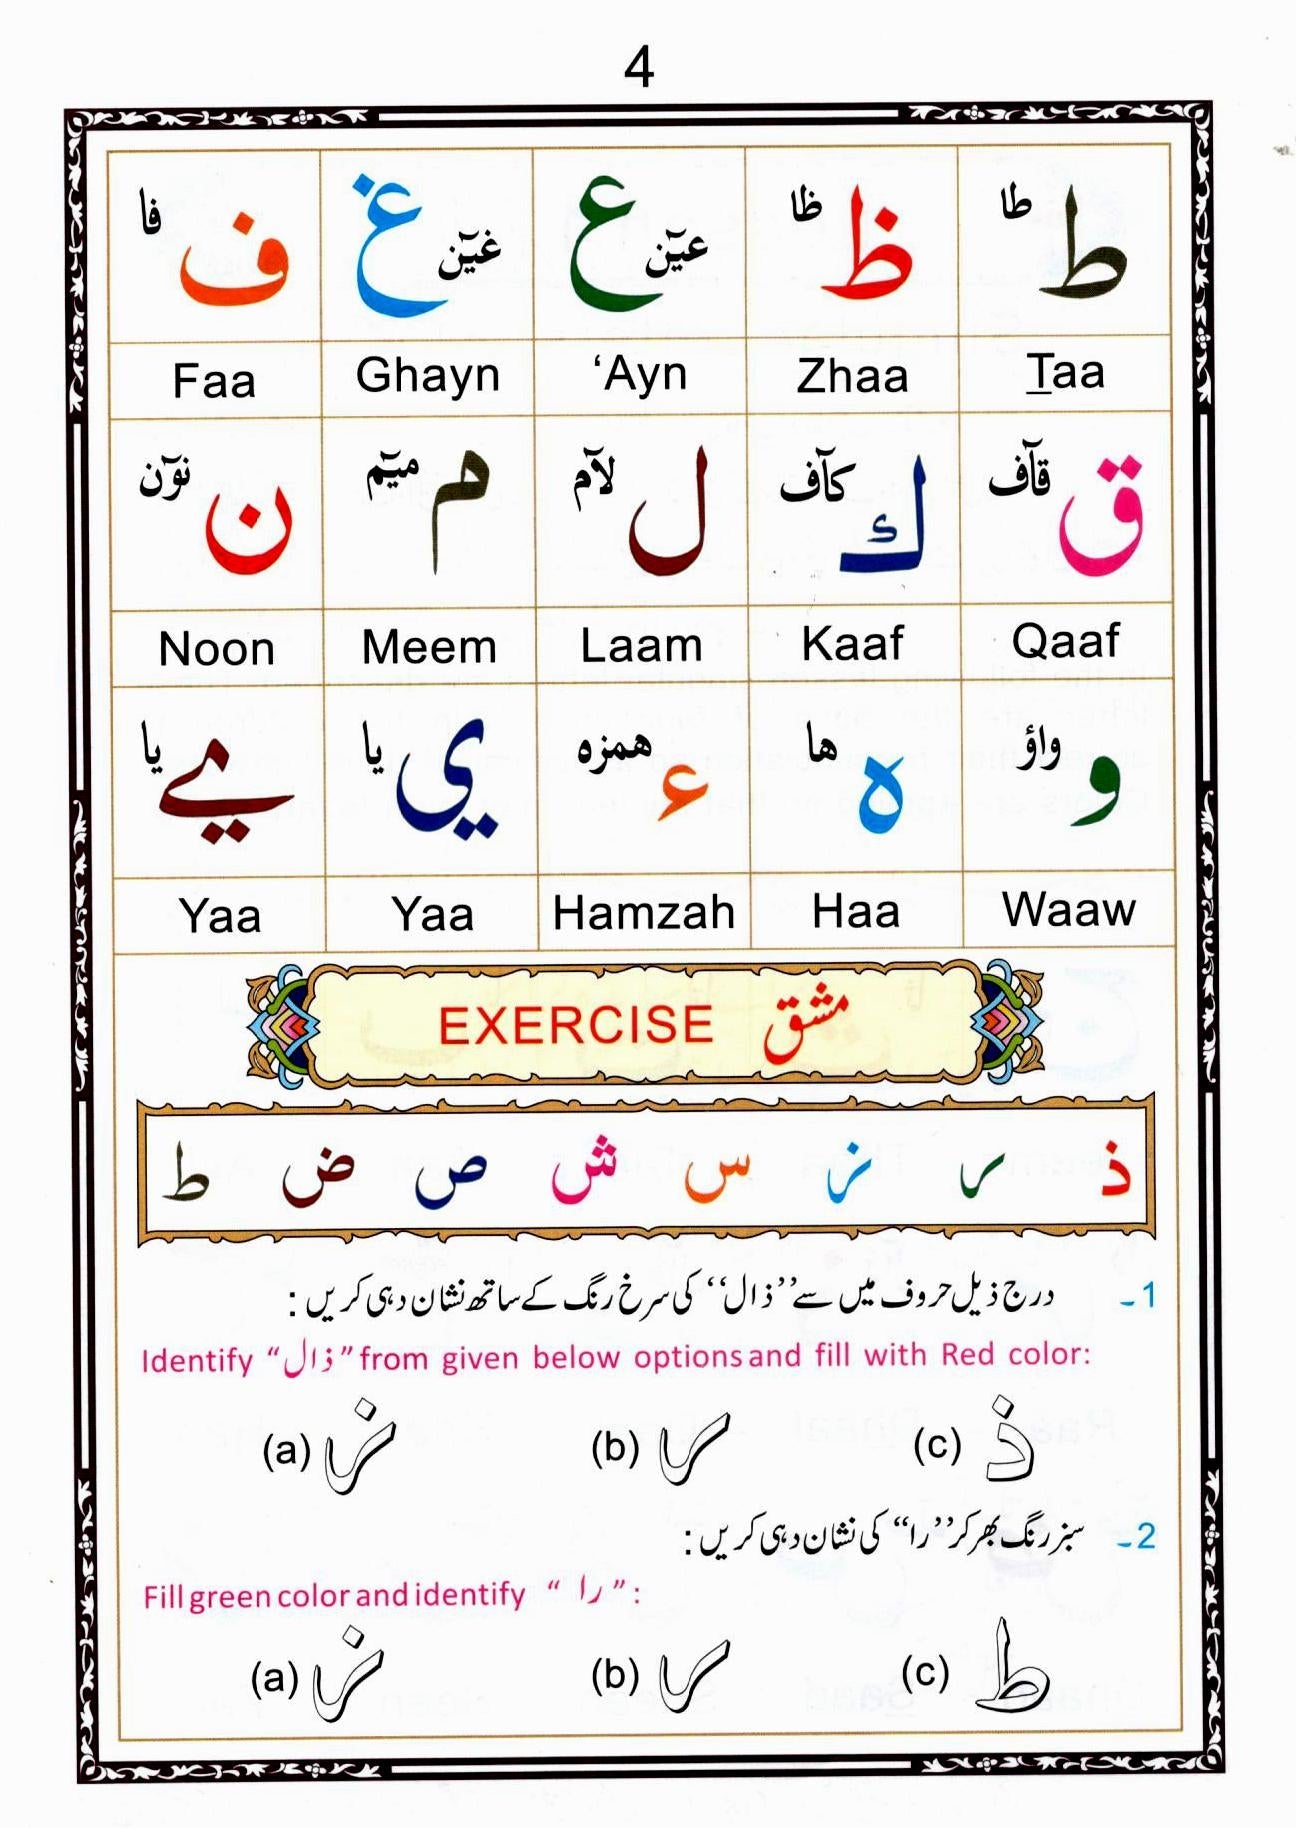 4
ط طا ظ ظا ع عیٓن غ غیٓن ف فا
Taa Zhaa ‘Ayn Ghayn Faa
ق قآف ك کآف ل لآم م میٓم ن نوٓن
Qaaf Kaaf Laam Meem Noon
و واؤ ہ ھا ء ھمزہ ي یا ے یا
Waaw Haa Hamzah Yaa Yaa
EXERCISE مشق
ذ ر ز س ش ص ض ط
1۔ درج ذیل حروف میں سے ’’ذال‘‘ کی سرخ رنگ کے ساتھ نشان دہی کریں :
Identify “ذال” from given below options and fill with Red color:
(a) ز (b) ر (c) ذ
2۔ سبز رنگ بھر کر ’’را‘‘ کی نشان دہی کریں :
Fill green color and identify “ را ” :
(a) ز (b) ر (c) ط